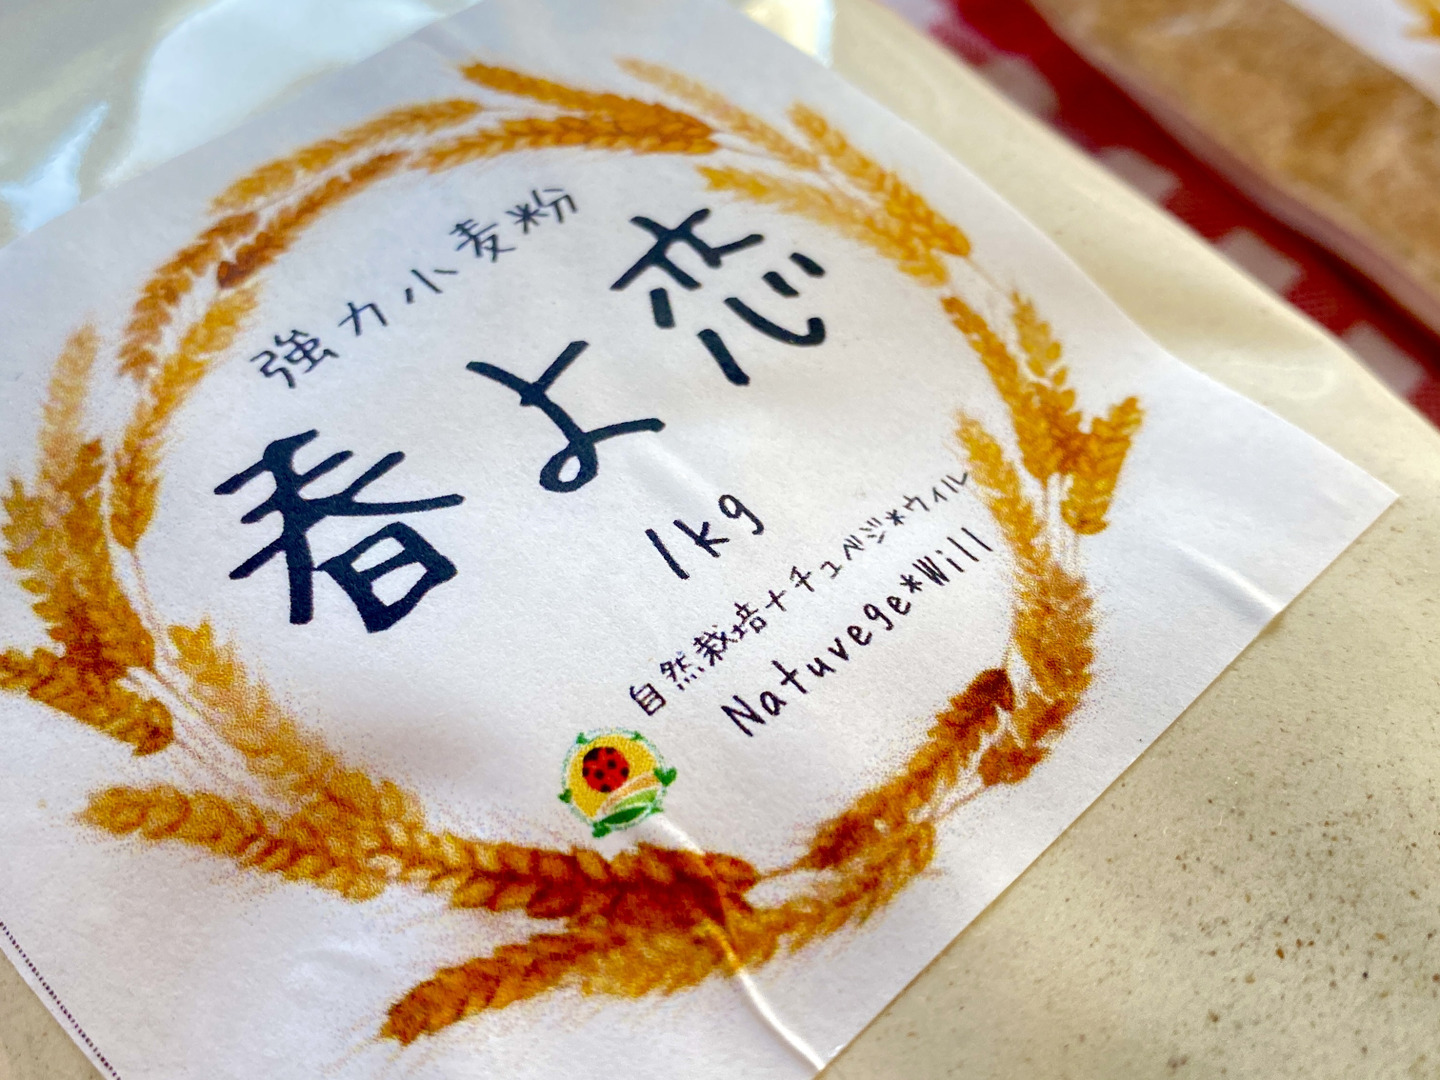 強力小麦粉
春よ恋
1kg
自然栽培ナチュベジ*ウィル
Natuvege*Will